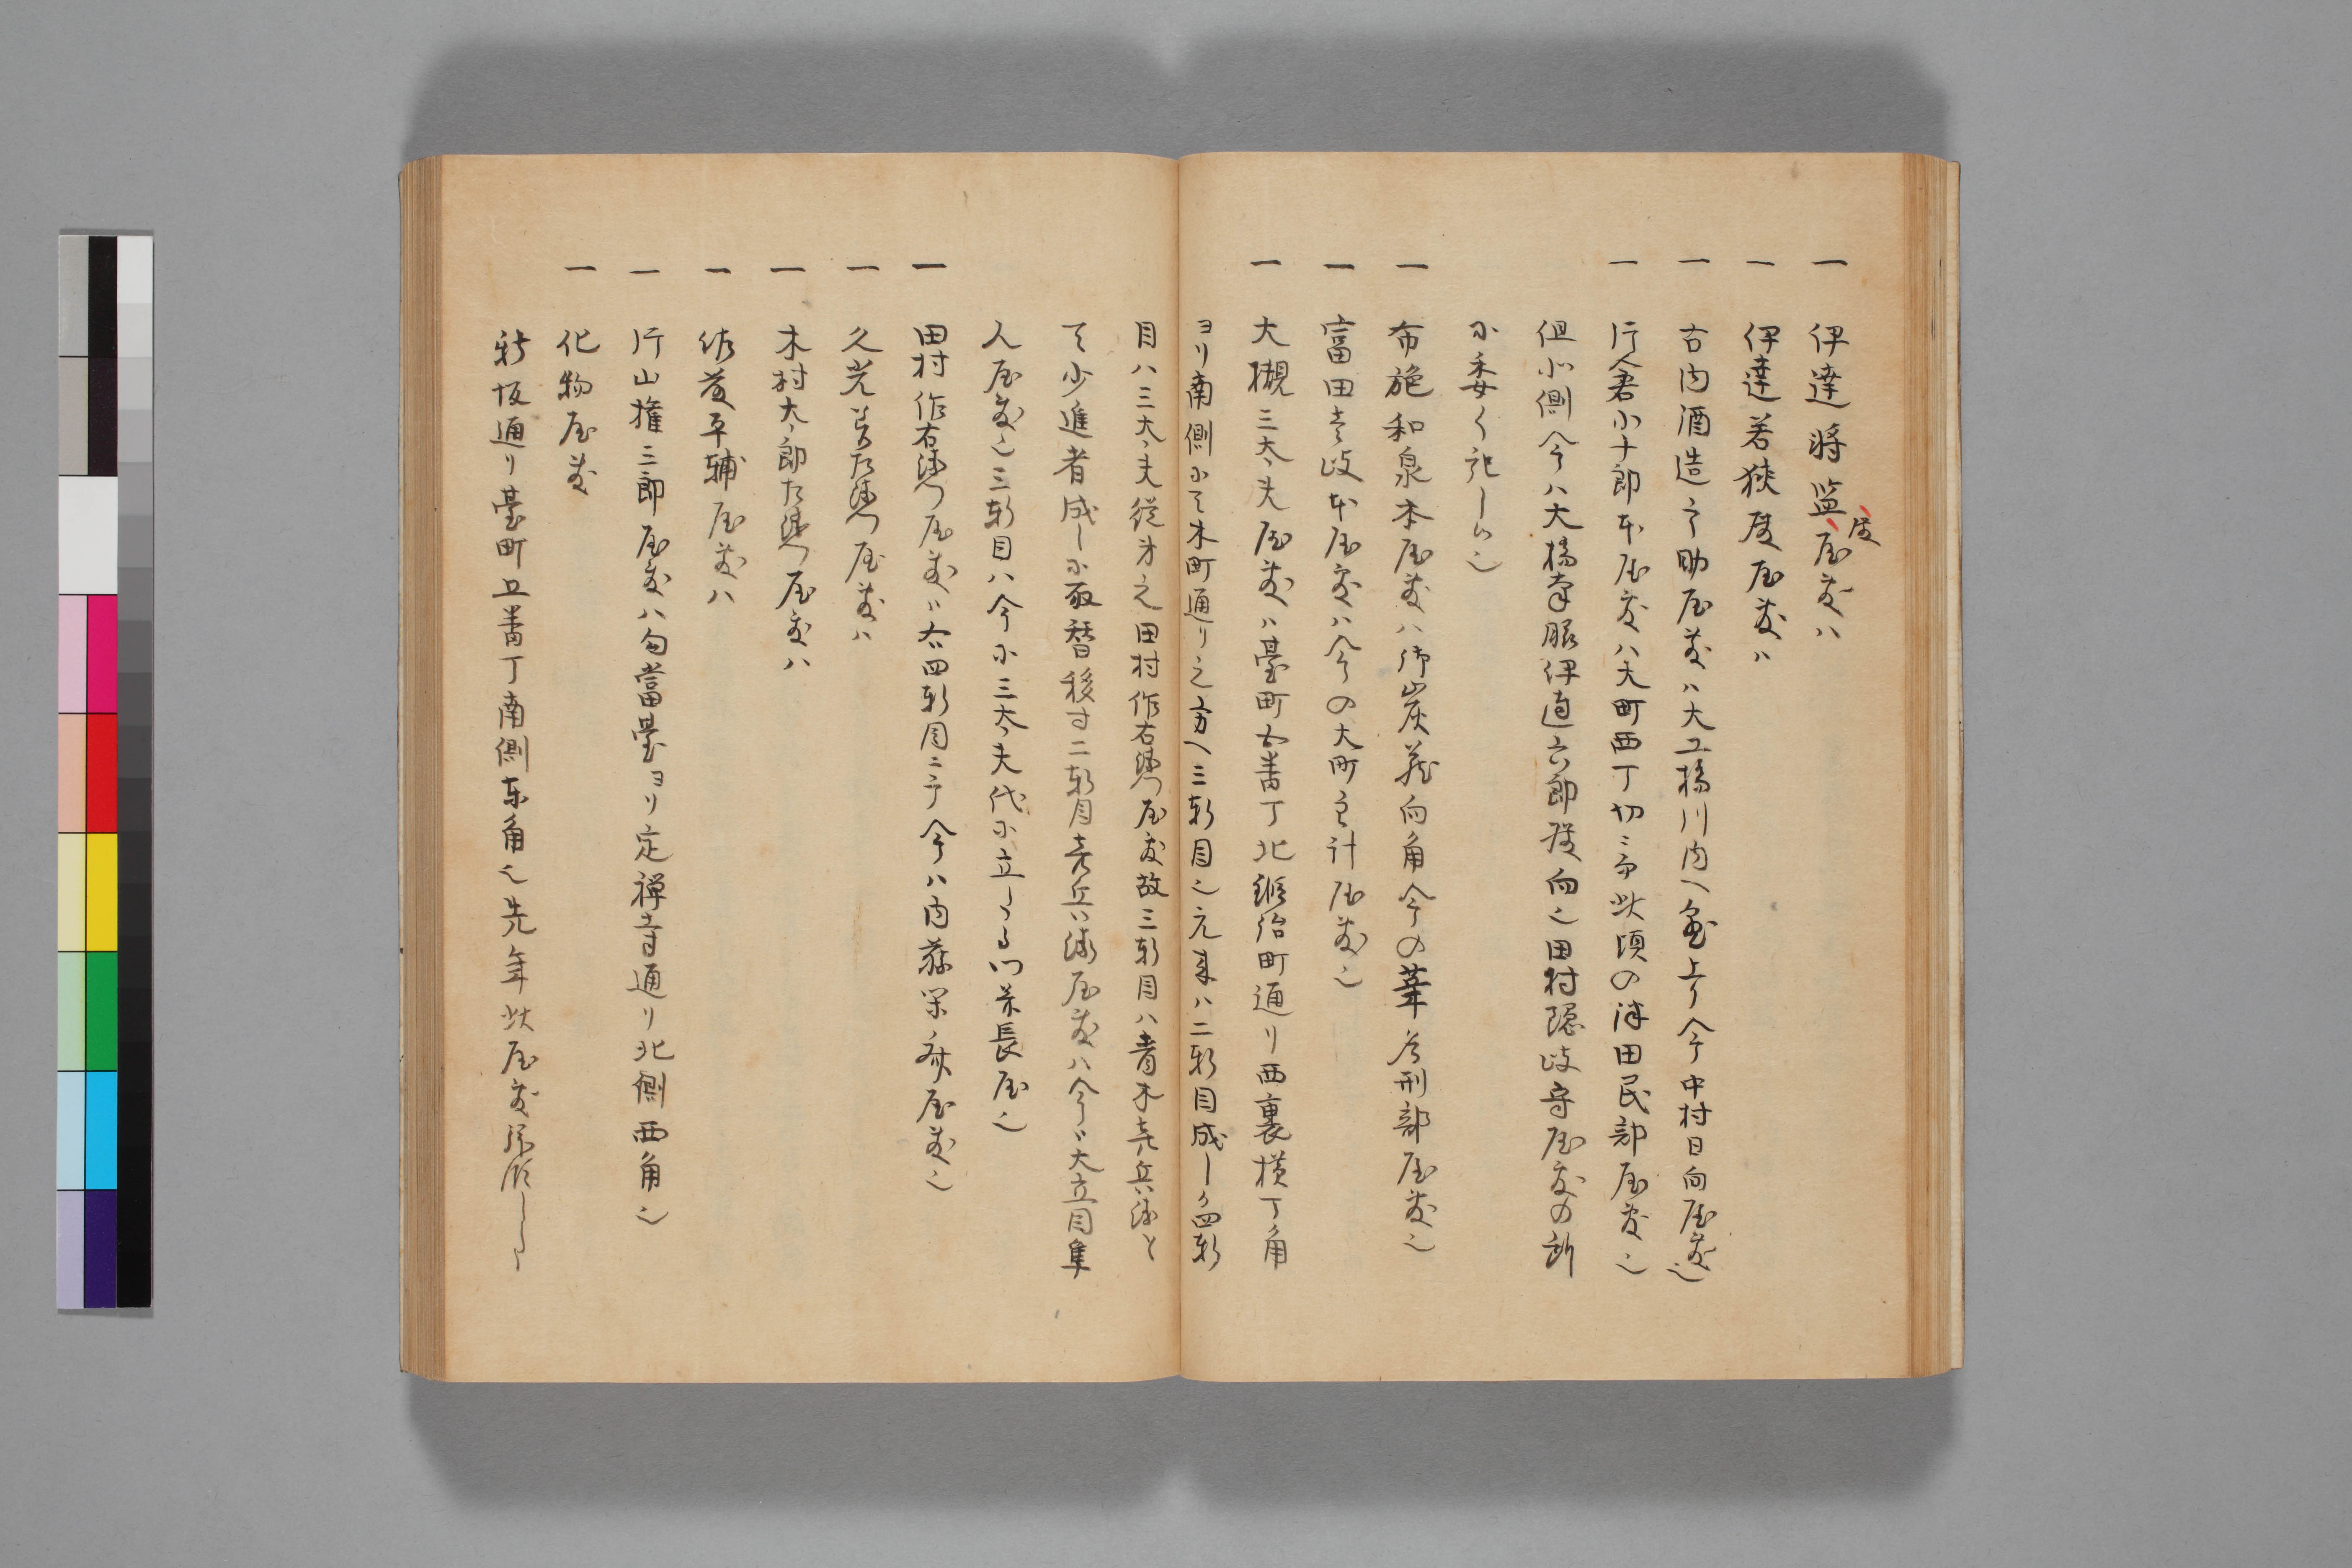 一 伊達将監殿屋敷ハ
一 伊達若狭殿屋敷ハ
一 古内酒造之助屋敷ハ大工橋川内へ 上り今中村日向屋敷也
一 片倉小十郎本屋敷ハ大町西丁切ニ而此頃の津田民部屋敷也
但北側今ハ大橋 伊達六郎殿向也田村隠岐守屋敷の所
小委く記し也
一 布施和泉本屋敷ハ御炭蔵向角今の葦名刑部屋敷也
一 富田壱岐本屋敷ハ今の大町主計屋敷也
一 大槻三太夫屋敷ハ臺町五番丁北鍛治町通リ西裏横丁角
ヨリ南側ニて木町通リ之方へ三軒目也元来ハ二軒目成しか四軒
目ハ三太夫従弟之田村作右衛門屋敷故三軒目ハ青木喜兵衛と
て少進者成しニ取替移す二軒目喜兵衛屋敷ハ今ハ大立目隼
人屋敷也三軒目ハ今ニ三太夫代ニ立たる門並長屋也
一 田村作右衛門屋敷ハ右四軒目ニテ今ハ内藤 屋敷也
一 久世 左衛門屋敷ハ
一 木村太郎左衛門屋敷ハ
一 佐藤平輔屋敷ハ
一 片山権三郎屋敷ハ勾當臺ヨリ定禅寺通リ北側西角也
一 化物屋敷
新坂通リ臺町五番丁南側東角也先年此屋敷